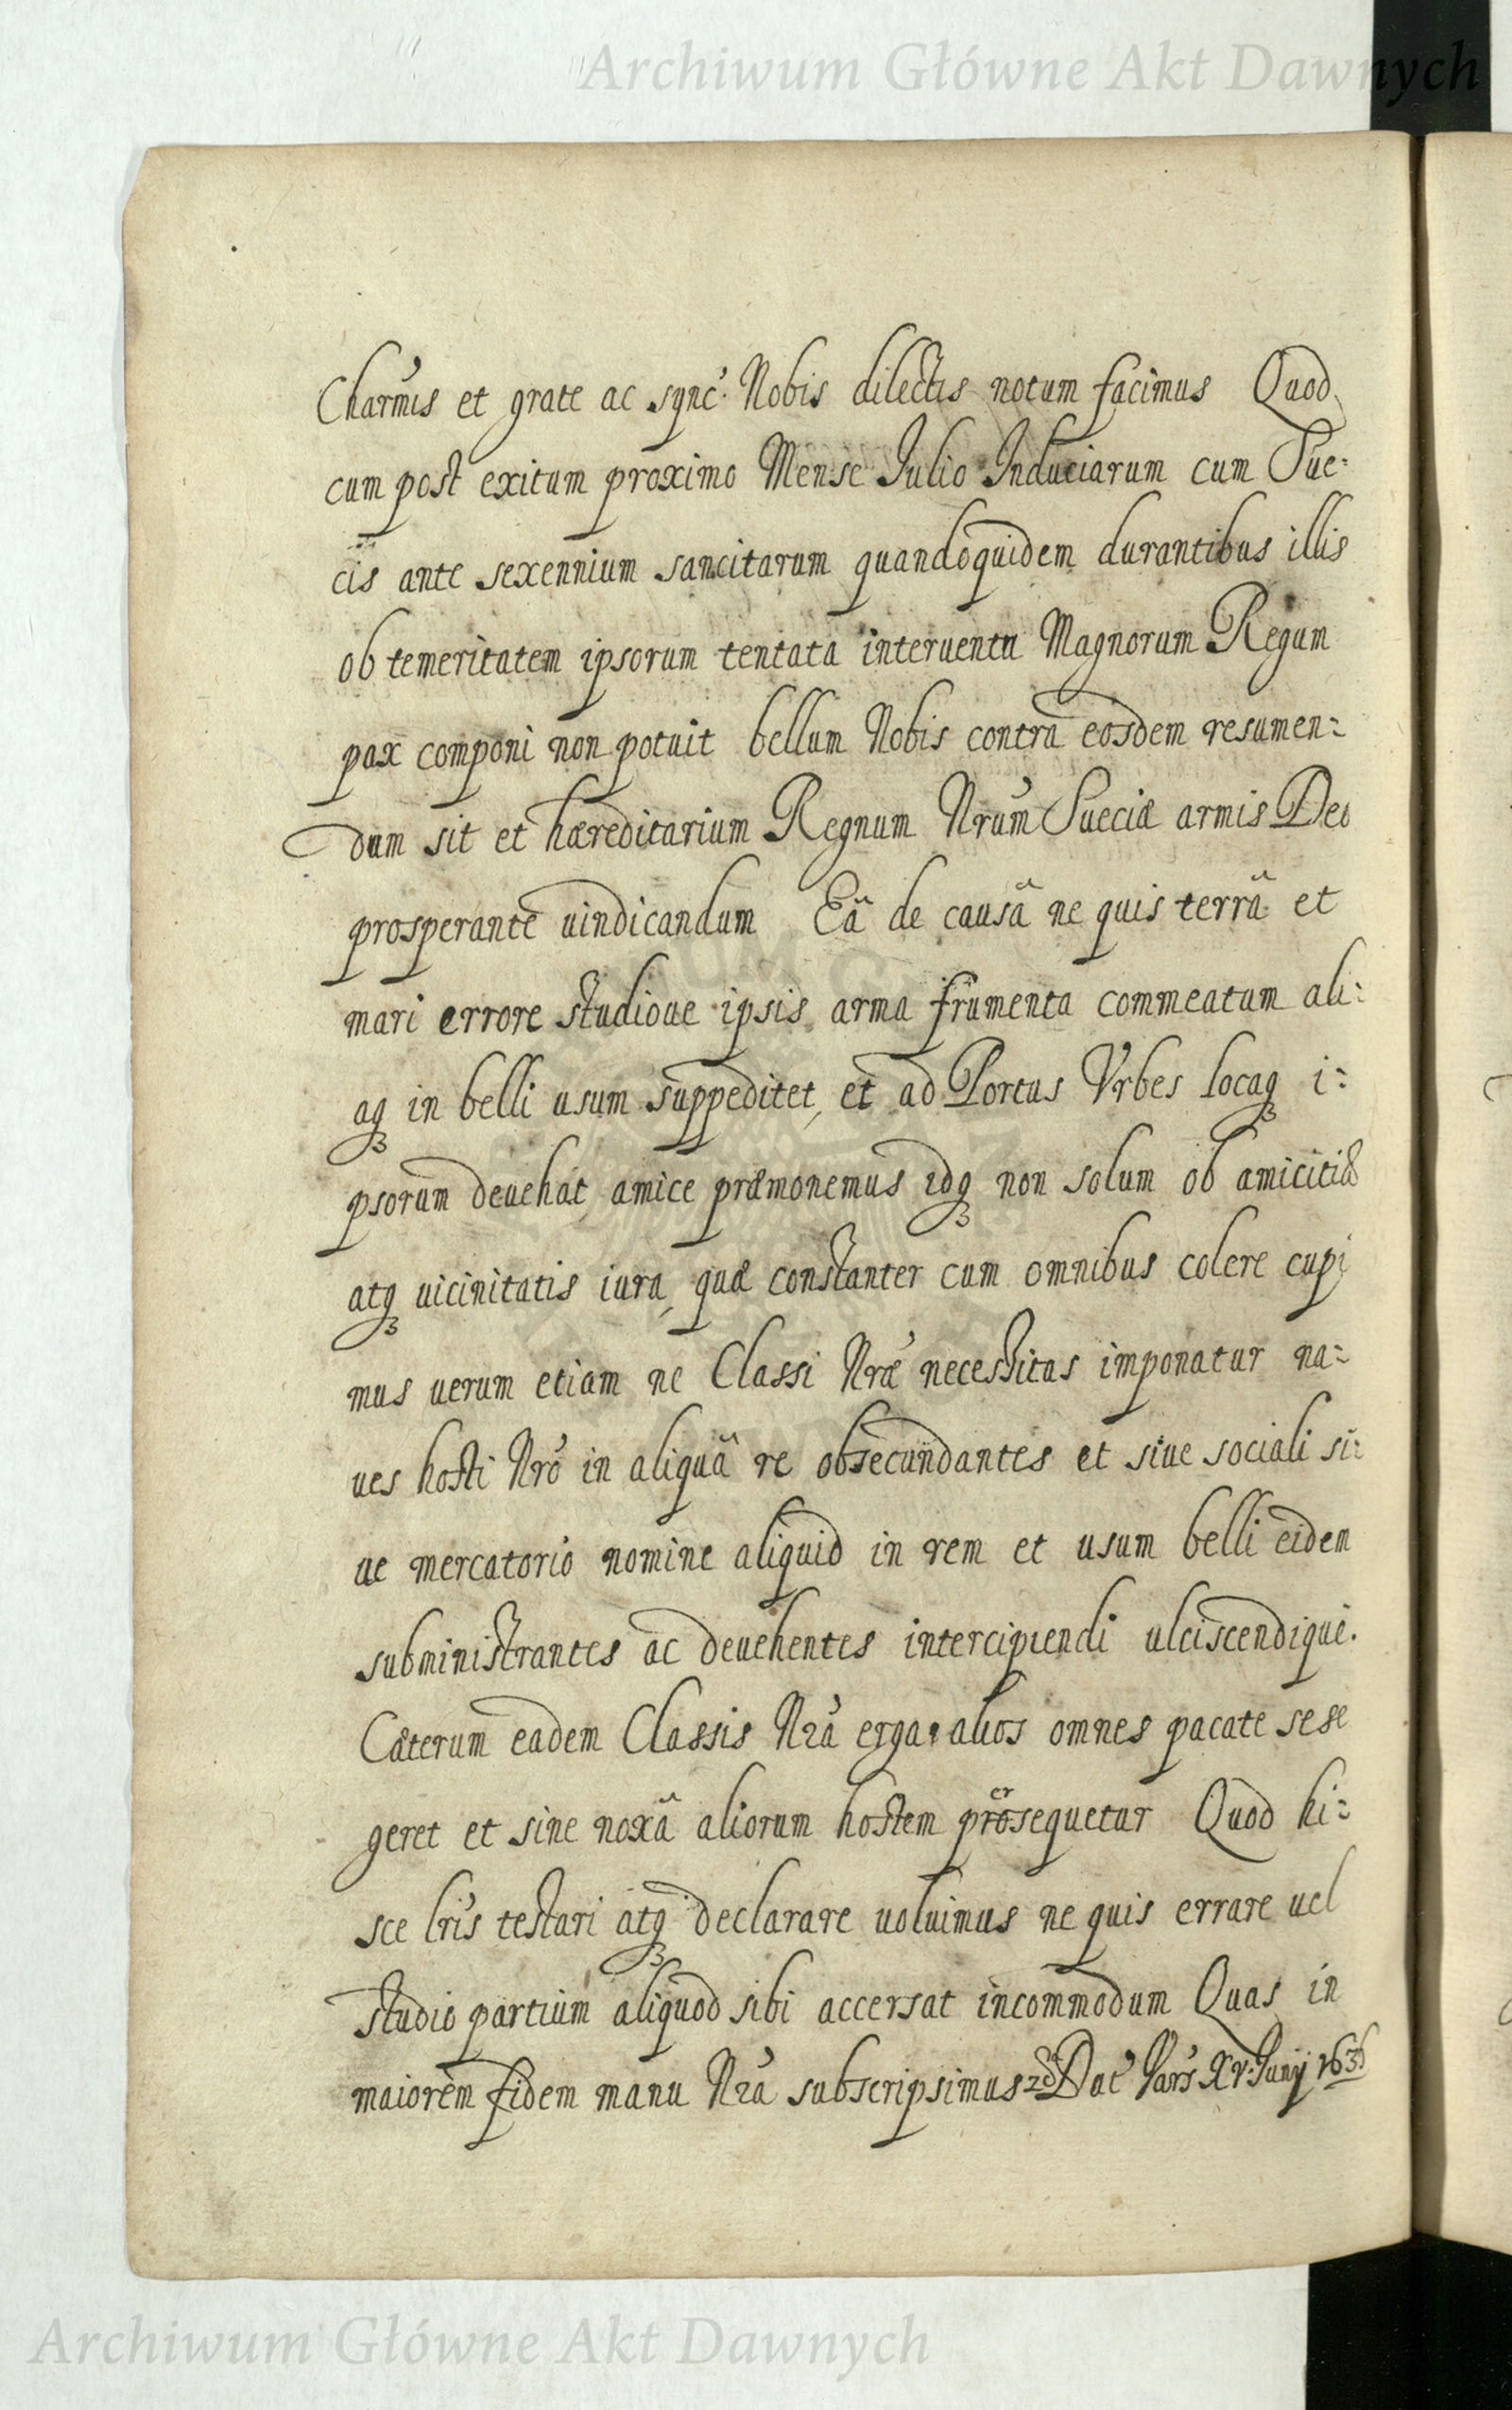 Archiwum Główne Akt Dawnych
Charm̃is et grate ac sync: Nobis dilectis notum facimus Quod
cum post exitum proximo Mense Iulio Induciarum cum Sue:
cis ante sexennium sancitarum quandoquidem durantibus illis
ob temeritatem ipsorum tentata interuentu Magnorum Regum
pax componi non potuit bellum Nobis contra eosdem resumen:
dum sit et hæreditarium Regnum Nrũm Sueciæ armis Deo
prosperante uindicandum Eâ de causâ ne quis terrâ et
mari errore studioue ipsis arma frumenta commeatum ali:
aq₃ in belli usum suppeditet, et ad Portus Vrbes locaq₃ i:
psorum deuehat, amice præmonemus idq₃ non solum ob amicitiæ
atq₃ uicinitatis iura, quæ constanter cum omnibus colere cupi
mus uerum etiam ne Classi Nræ̃ necessitas imponatur na:
ues hosti Nrõ in aliquâ re obsecundantes et siue sociali si:
ue mercatorio nomine aliquid in rem et usum belli eidem
subministrantes ac deuehentes intercipiendi ulciscendique.
Cæterum eadem Classis Nrã erga alios omnes pacate sese
geret et sine noxâ aliorum hostem prosequetur Quod hi:
sce lris̃ testari atq₃ declarare uoluimus ne quis errare uel
studio partium aliquod sibi accersat incommodum Quas in
maiorem fidem manu Nrã subscripsimus Dat Vars XV. Iunij
Archiwum Główne Akt Dawnych